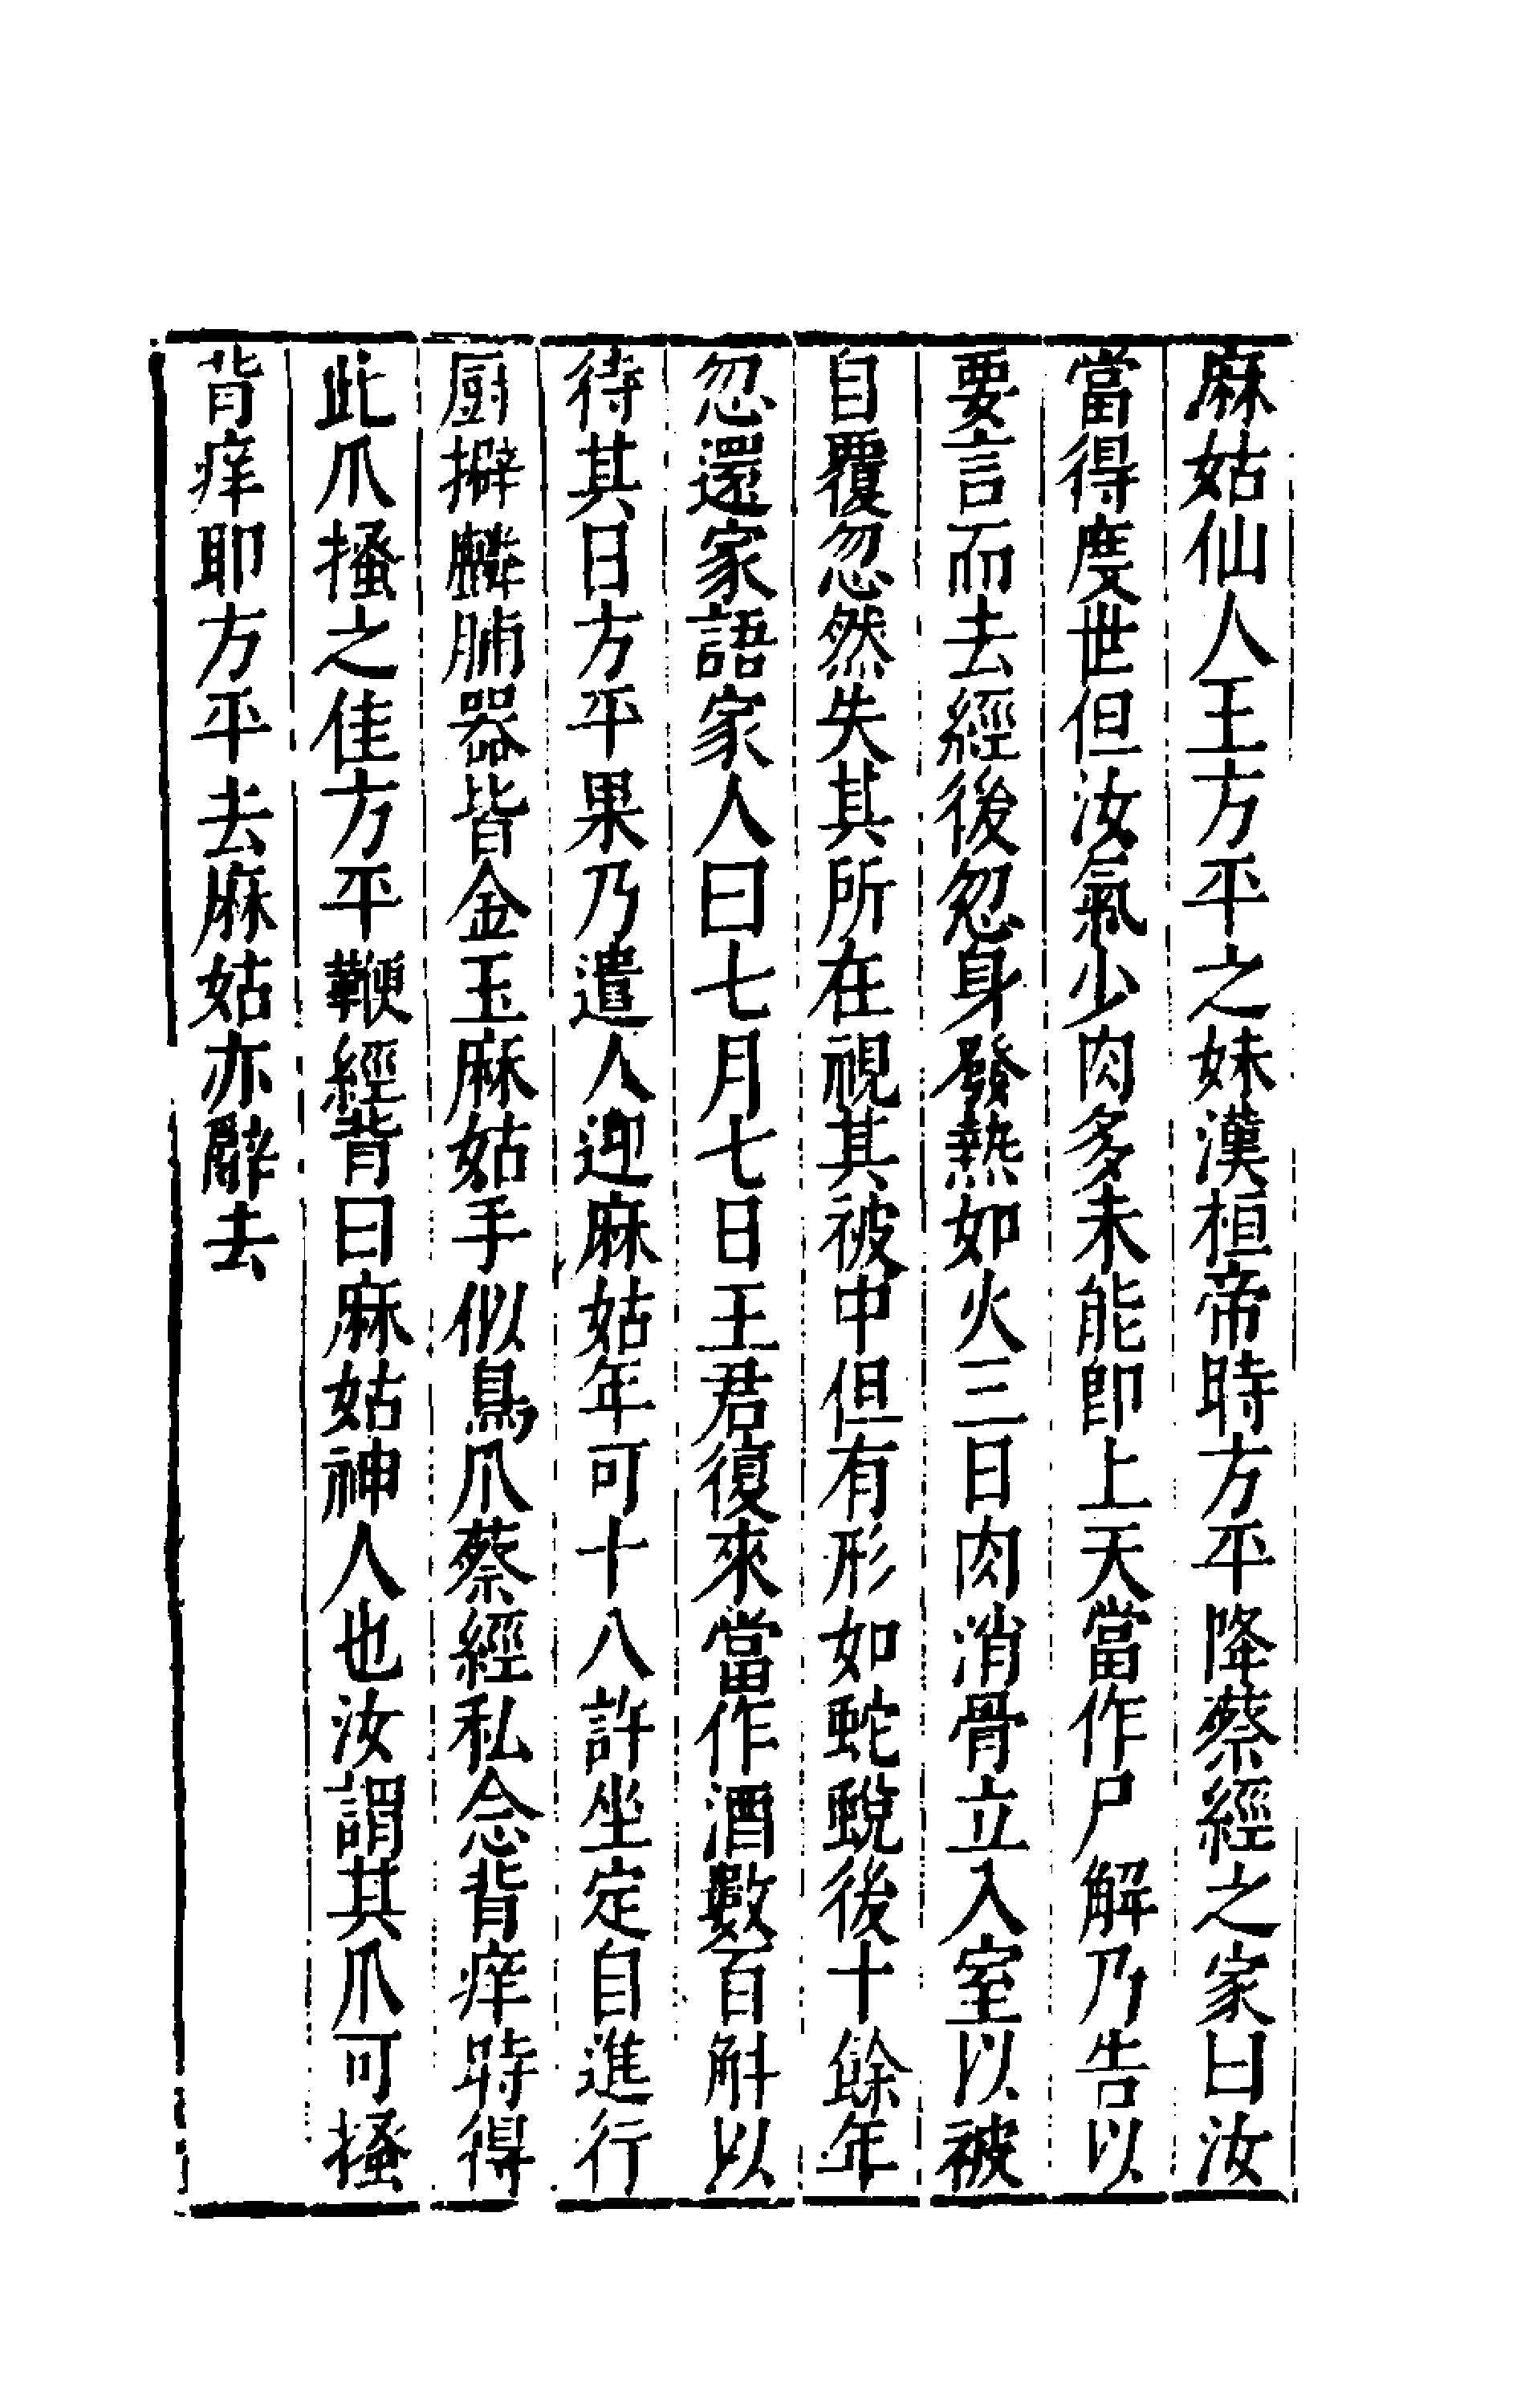 麻姑仙人王方平之妹漢桓帝時方平降蔡經之家曰汝
當得度世但汝氣少肉多未能即上天當作尸解乃告以
要言而去經後忽身發熱如火三日肉消骨立入室以被
自覆忽然失其所在視其被中但有形如蛇蛻後十餘年
忽還家語家人曰七月七日王君復來當作酒數百斛以
待其日方平果乃遣人迎麻姑年可十八許坐定自進行
厨擗麟脯器皆金玉麻姑手似鳥爪蔡經私念背痒時得
此爪搔之佳方平鞭經背曰麻姑神人也汝謂其爪可搔
背痒耶方平去麻姑亦辭去